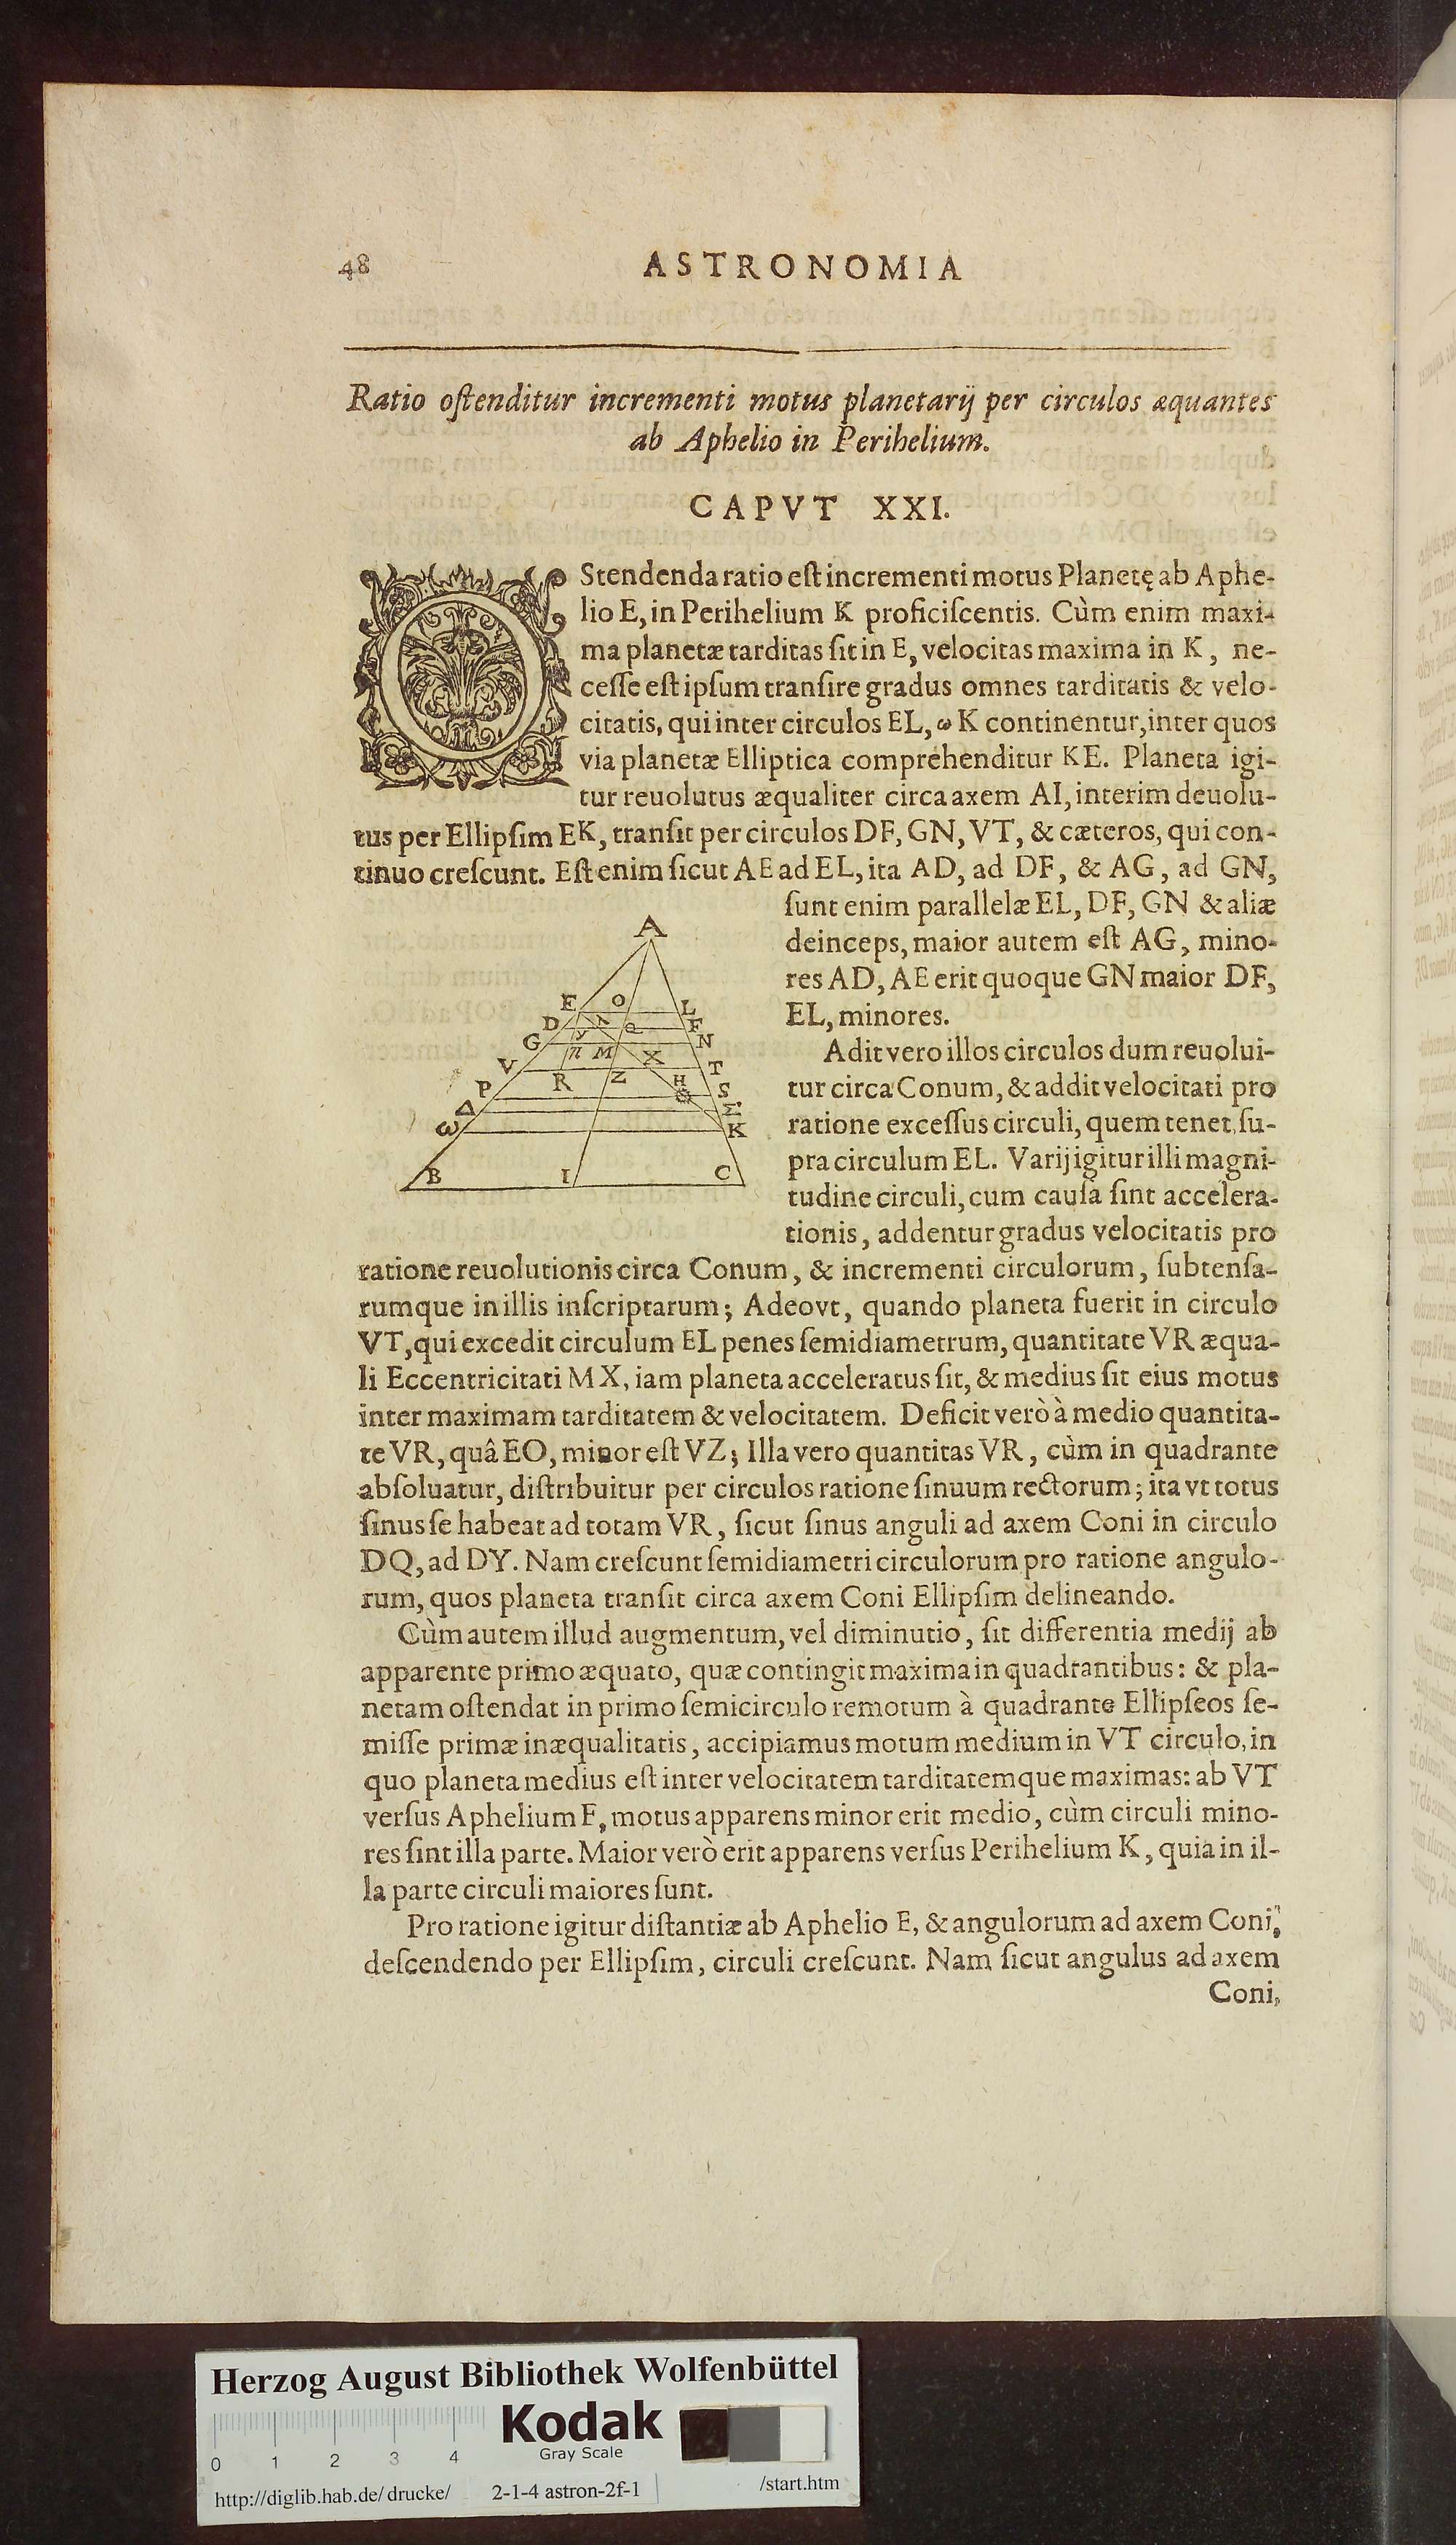 48
ASTRONOMIA
Ratio oſtenditur incrementi motus planetarij per circulos æquantes
ab Aphelio in Perihelium.
CAPVT XXI.
OStendenda ratio eſt incrementi motus Planetę ab Aphe-
lio E, in Perihelium K proficiſcentis. Cùm enim maxi-
ma planetæ tarditas ſit in E, velocitas maxima in K, ne-
ceſſe eſt ipſum tranſire gradus omnes tarditatis & velo-
citatis, qui inter circulos EL, ω K continentur, inter quos
via planetæ Elliptica comprehenditur KE. Planeta igi-
tur reuolutus æqualiter circa axem AI, interim deuolu-
tus per Ellipſim EK, tranſit per circulos DF, GN, VT, & cæteros, qui con-
tinuo creſcunt. Eſt enim ſicut AE ad EL, ita AD, ad DF, & AG, ad GN,
ſunt enim parallelæ EL, DF, GN & aliæ
deinceps, maior autem eſt AG, mino-
res AD, AE erit quoque GN maior DF,
EL, minores.
Adit vero illos circulos dum reuolui-
tur circa Conum, & addit velocitati pro
ratione exceſſus circuli, quem tenet, ſu-
pra circulum EL. Varij igitur illi magni-
tudine circuli, cum cauſa ſint accelera-
tionis, addentur gradus velocitatis pro
A
E O L
D λ Q F
G y N
π M X
V R Z T
P H S
Δ Σ
ω K
B I C
ratione reuolutionis circa Conum, & incrementi circulorum, ſubtenſa-
rumque in illis inſcriptarum; Adeovt, quando planeta fuerit in circulo
VT, qui excedit circulum EL penes ſemidiametrum, quantitate VR æqua-
li Eccentricitati MX, iam planeta acceleratus ſit, & medius ſit eius motus
inter maximam tarditatem & velocitatem. Deficit verò à medio quantita-
te VR, quâ EO, minor eſt VZ; Illa vero quantitas VR, cùm in quadrante
abſoluatur, diſtribuitur per circulos ratione ſinuum rectorum; ita vt totus
ſinus ſe habeat ad totam VR, ſicut ſinus anguli ad axem Coni in circulo
DQ, ad DY. Nam creſcunt ſemidiametri circulorum pro ratione angulo-
rum, quos planeta tranſit circa axem Coni Ellipſim delineando.
Cùm autem illud augmentum, vel diminutio, ſit differentia medij ab
apparente primo æquato, quæ contingit maxima in quadrantibus: & pla-
netam oſtendat in primo ſemicirculo remotum à quadrante Ellipſeos ſe-
miſſe primæ inæqualitatis, accipiamus motum medium in VT circulo, in
quo planeta medius eſt inter velocitatem tarditatemque maximas: ab VT
verſus Aphelium E, motus apparens minor erit medio, cùm circuli mino-
res ſint illa parte. Maior verò erit apparens verſus Perihelium K, quia in il-
la parte circuli maiores ſunt.
Pro ratione igitur diſtantiæ ab Aphelio E, & angulorum ad axem Coni,
deſcendendo per Ellipſim, circuli creſcunt. Nam ſicut angulus ad axem
Coni,
Herzog August Bibliothek Wolfenbüttel
Kodak
Gray Scale
0 1 2 3 4
http://diglib.hab.de/drucke/ 2-1-4 astron-2f-1 /start.htm